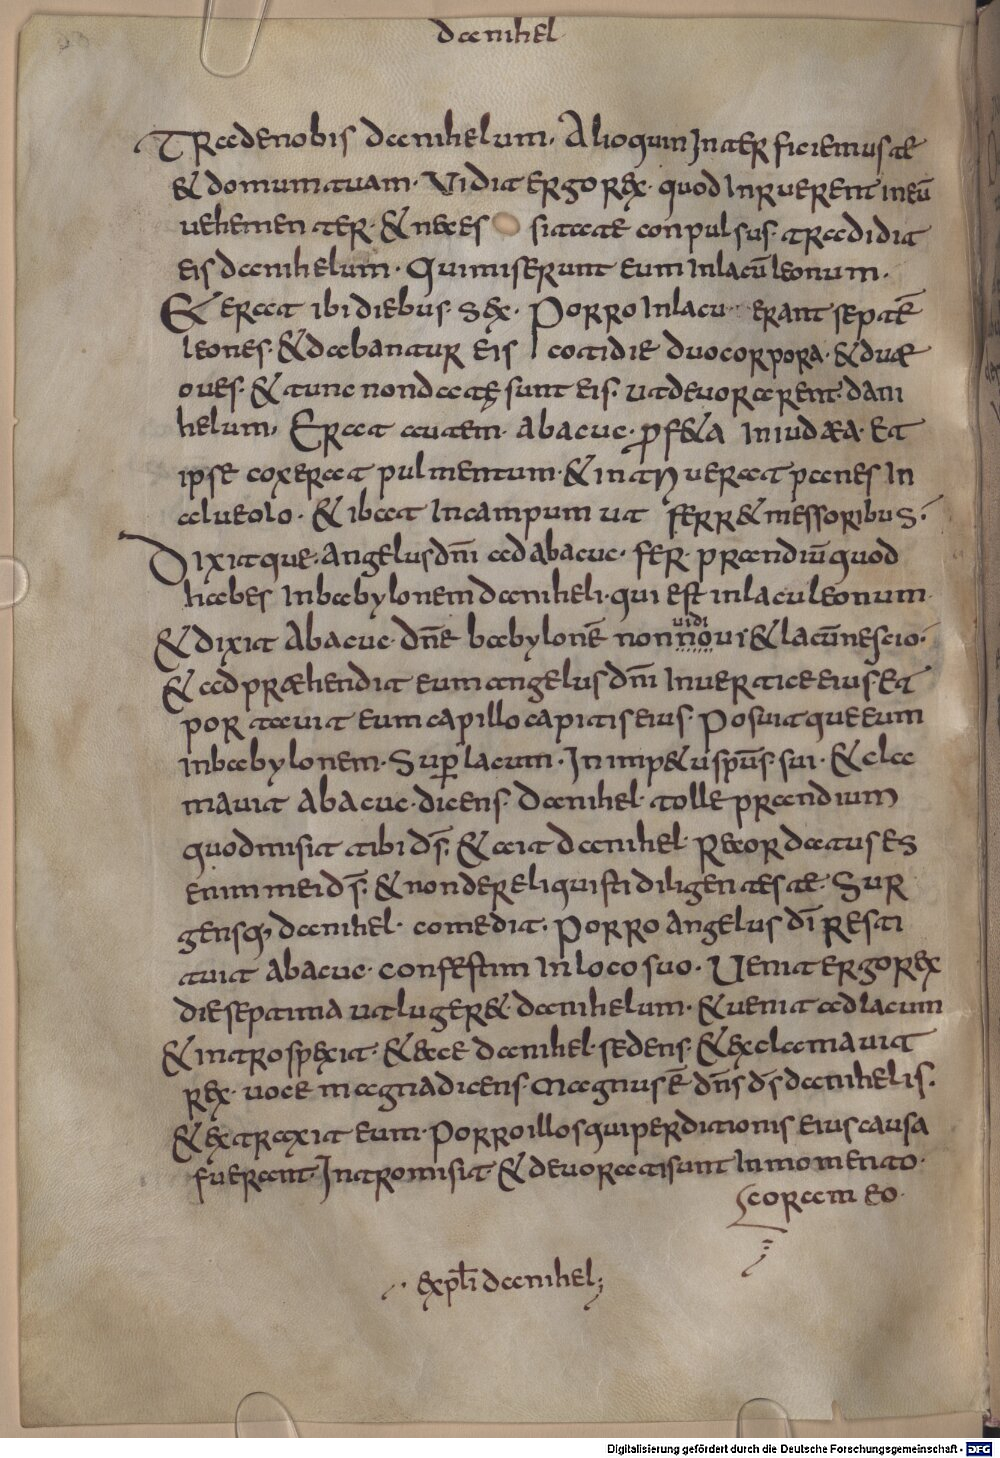 danihel
Trade nobis danihelum. Alioquin Interficiemus te
& domum tuam. Vidit ergo rex. quod Inruerent in eū
uehementer. & neces sitate conpulsus. tradidit
eis danihelum. Qui miserunt eum In lacū leonum.
Et erat ibi diebus. sex. Porro In lacu erant septē
leones. & dabantur eis cotidie duo corpora. & duæ
oues. & tunc non datę sunt eis. ut deuorarent. dani
helum, Erat autem. abacuc. ꝓf&a In iudæa. Et
ipse coxerat pulmentum. & intriuerat panes In
alueolo. & ibat In campum ut ferr& messoribus.
Dixitque. angelus dn̄i ad abacuc. fer. prandiū quod
habes In babylonem daniheli. qui est in lacu leonum.
& dixit abacuc. dn̄e babylonē non noui & lacū nescio.
uidi
& adpræhendit eum angelus dn̄i In uertice eius Et
portauit eum capillo capitis eius. Posuitque eum
in babylonem. Suꝑ lacum. In imp&u sp̄us. sui. & cla
mauit abacuc. dicens. danihel. tolle prandium
quod misit tibi d̄s. & ait danihel. Recordatus es
enim mei d̄s. & non dereliquisti diligentes te. Sur
gensq; danihel. comedit. Porro angelus dī Resti
tuit abacuc. confestim In loco suo. Uenit ergo rex
die septima ut luger& danihelum. & uenit ad lacum
& introspexit. & ecce danihel. sedens. & exclamauit
rex. uoce magna dicens. Magnus ē. dn̄s d̄s danihelis.
& extraxit eum. Porro illos qui perditionis eius causa
fuerant. Intromisit & deuorati sunt In momento.
coram eo.
expl̄i danihel;
Digitalisierung gefördert durch die Deutsche Forschungsgemeinschaft - DFG